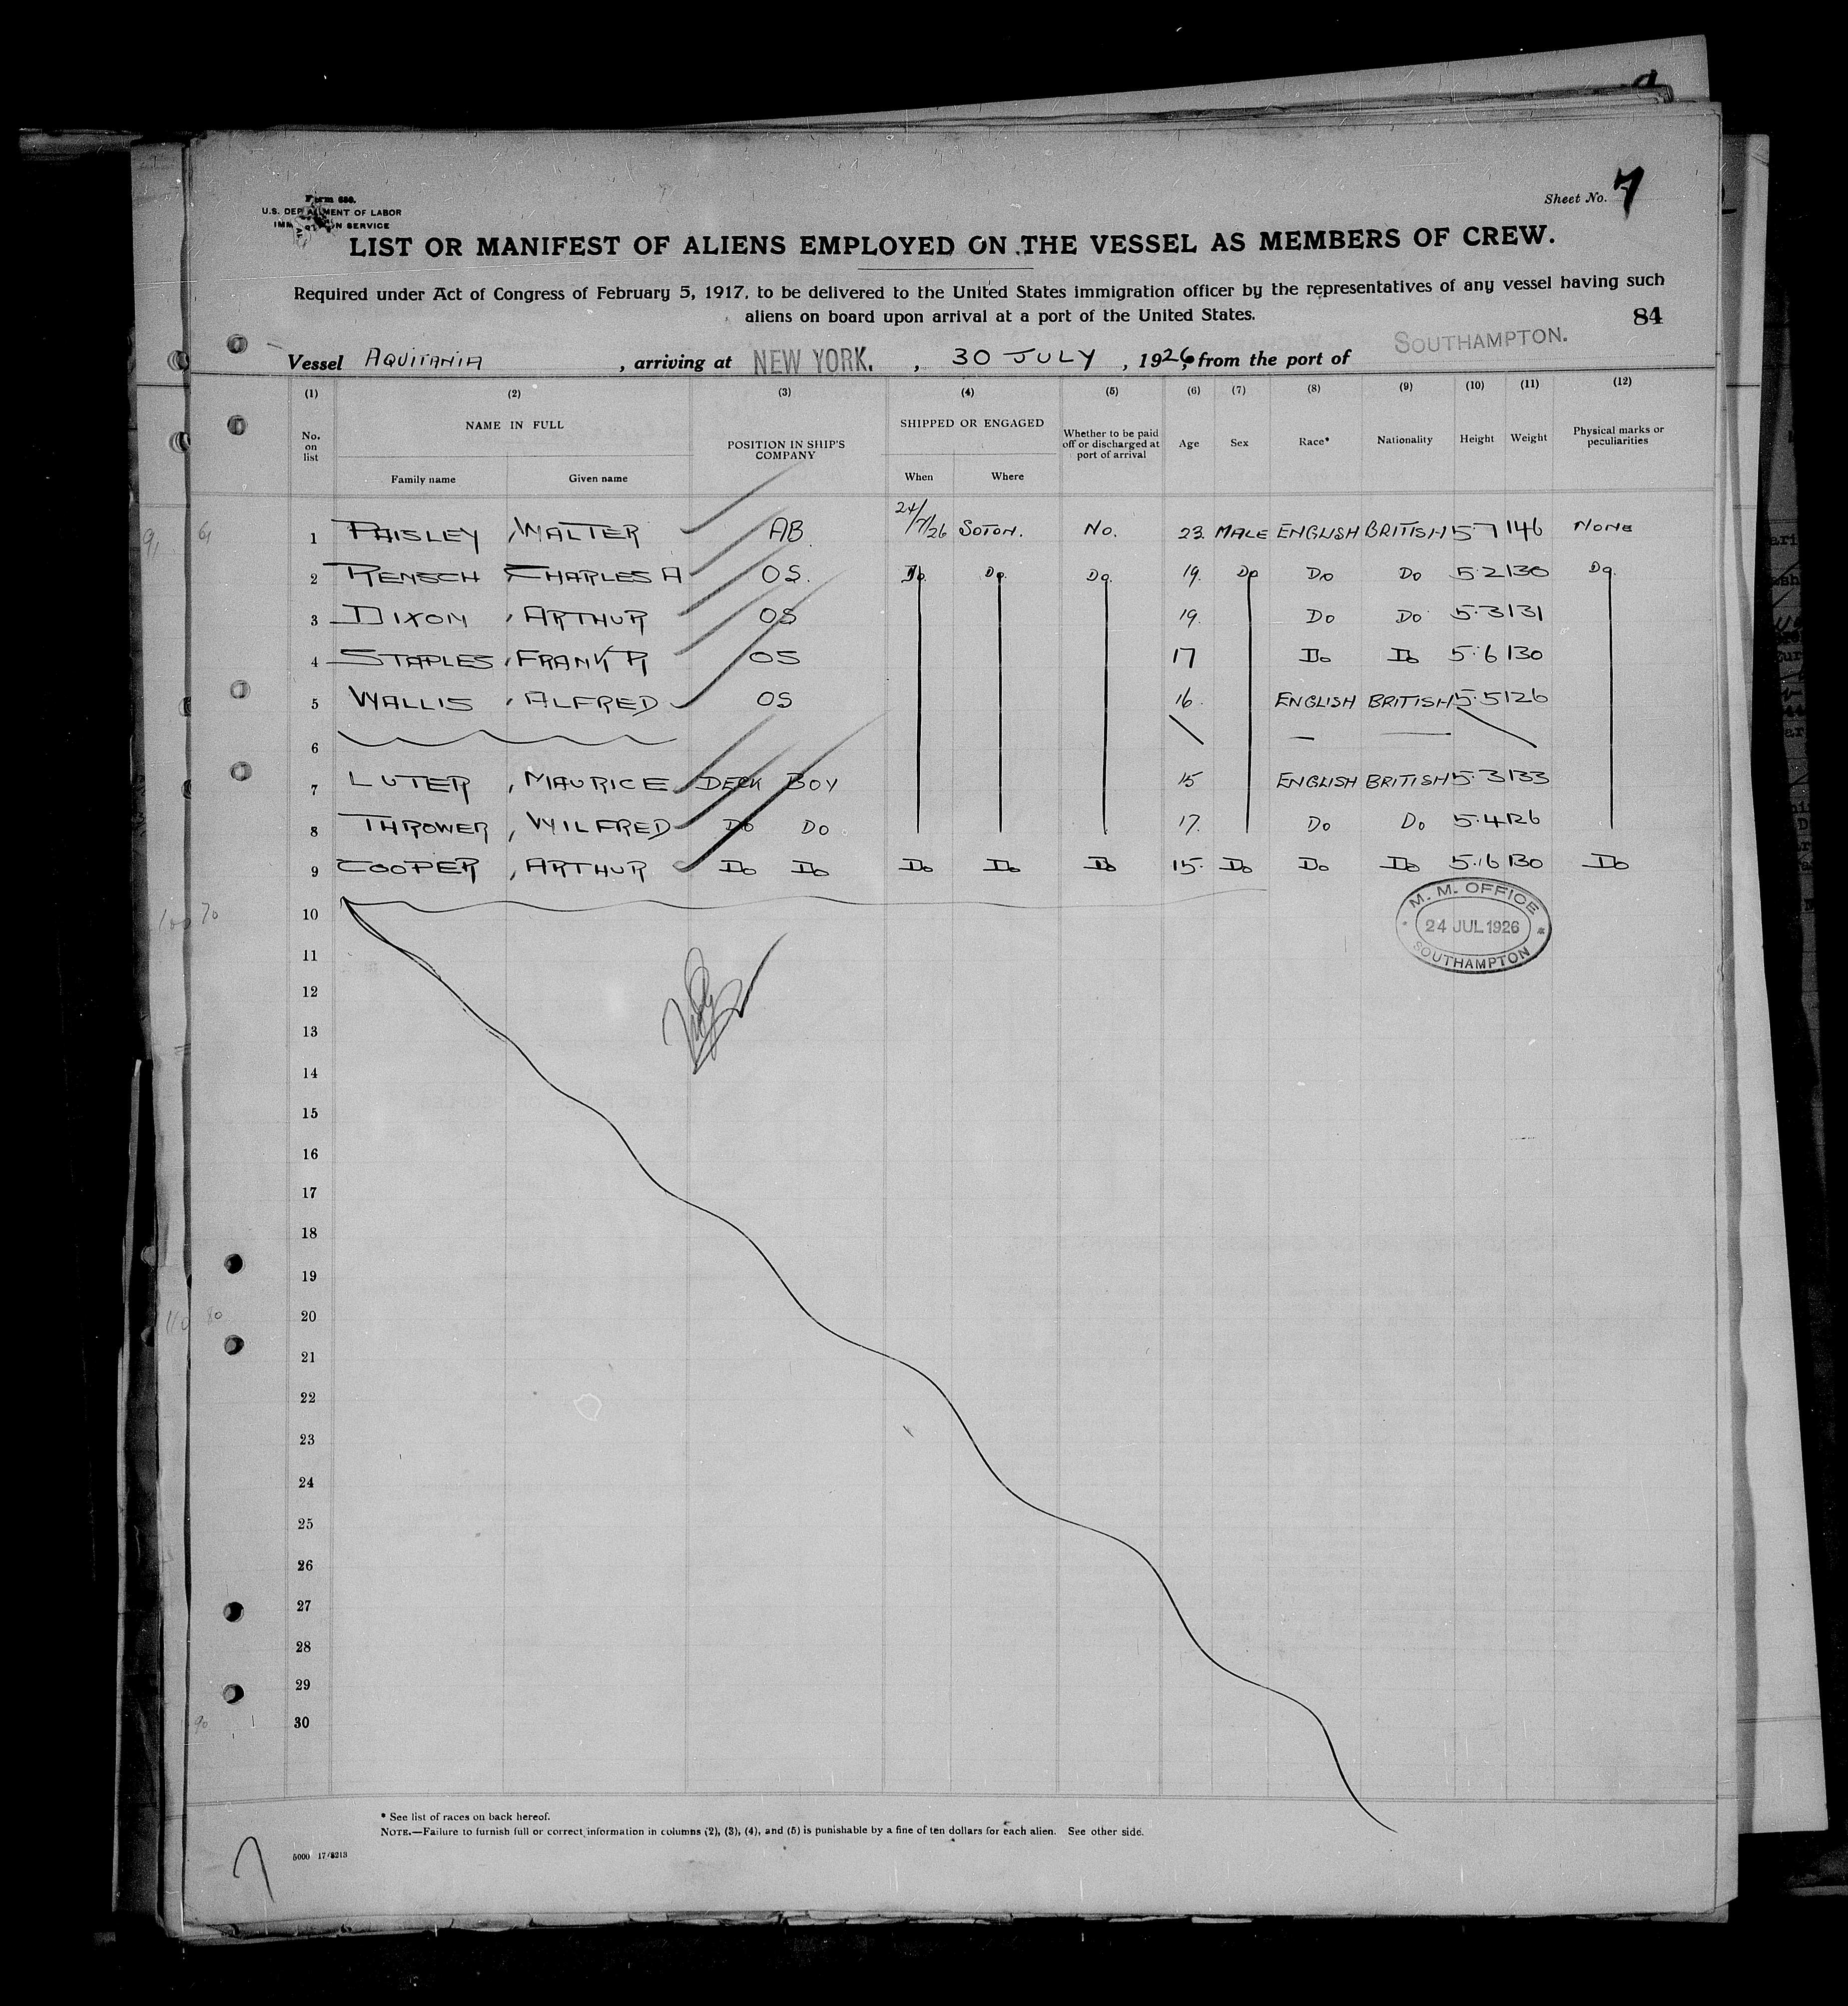 Form 680.
U.S. DEPARTMENT OF LABOR
IMMIGRATION SERVICE
Sheet No. 7
LIST OR MANIFEST OF ALIENS EMPLOYED ON THE VESSEL AS MEMBERS OF CREW.
Required under Act of Congress of February 5, 1917, to be delivered to the United States immigration officer by the representatives of any vessel having such
aliens on board upon arrival at a port of the United States.
84
Vessel AQUITANIA, arriving at NEW YORK., 30 JULY, 1926, from the port of SOUTHAMPTON.
(1) (2) (3) (4) (5) (6) (7) (8) (9) (10) (11) (12)
No. on list NAME IN FULL POSITION IN SHIP'S COMPANY SHIPPED OR ENGAGED Whether to be paid off or discharged at port of arrival Age Sex Race* Nationality Height Weight Physical marks or peculiarities
Family name Given name When Where
1 PAISLEY, WALTER AB 24/7/26 SOTON. No. 23. MALE ENGLISH BRITISH 5.7 146 NONE
2 RENSCH CHARLES A OS. Do. Do. Do. 19. Do Do Do 5.2 130 Do.
3 DIXON, ARTHUR OS 19. Do Do 5.3 131
4 STAPLES, FRANK R OS 17 Do Do 5.6 130
5 WALLIS, ALFRED OS 16. ENGLISH BRITISH 5.5 126
6
7 LUTER, MAURICE DECK BOY 15 ENGLISH BRITISH 5.3 133
8 THROWER, WILFRED Do Do 17. Do Do 5.4 126
9 COOPER, ARTHUR Do Do Do Do Do 15. Do Do Do 5.6 130 Do
M. M. OFFICE
24 JUL 1926
SOUTHAMPTON
10
11
12
13
14
15
16
17
18
19
20
21
22
23
24
25
26
27
28
29
30
* See list of races on back hereof.
NOTE.—Failure to furnish full or correct information in columns (2), (3), (4), and (5) is punishable by a fine of ten dollars for each alien. See other side.
5000 17/8213
7